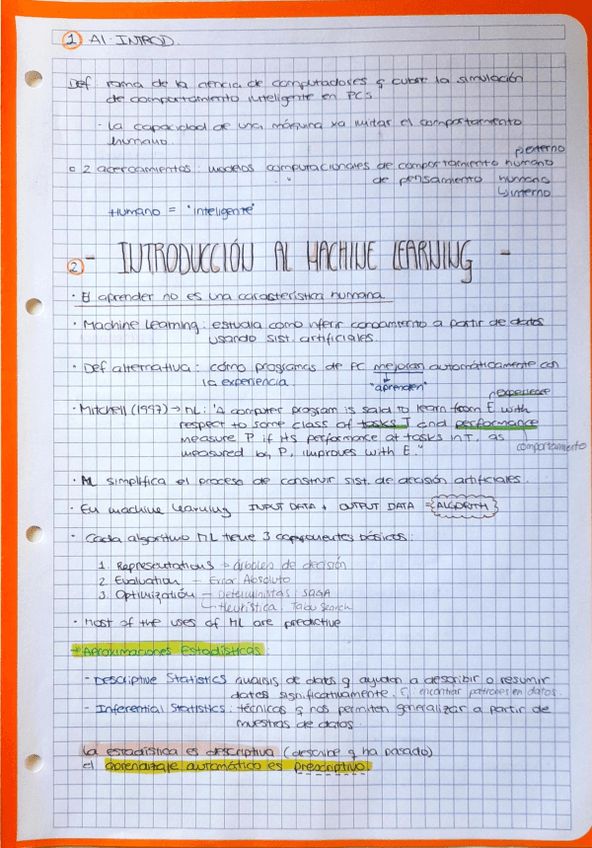 1 AI INTROD.
Def rama de la ciencia de computadores q cubre la simulación
de comportamiento inteligente en PCs
· La capacidad de una máquina xa imitar el comportamiento
humano.
externo
2 acercamientos: modelos computacionales de comportamiento humano
de pensamiento humano
interno
Humano = "inteligente"
2 - INTRODUCCIÓN AL MACHINE LEARNING -
· El aprender no es una característica humana.
· Machine Learning: estudia como inferir conocimiento a partir de datos
usando sist. artificiales.
· Def alternativa: cómo programas de PC mejoran automáticamente con
la experiencia. "aprenden"
experience
· Mitchell (1997) → ML: "A computer program is said to learn from E with
respect to some class of tasks T and performance
measure P if its performance at tasks in T, as
comportamiento
measured by P, improves with E."
· ML simplifica el proceso de construir sist. de decisión artificiales.
· En machine learning INPUT DATA + OUTPUT DATA = ALGORITH
· Cada algoritmo ML tiene 3 componentes básicos:
1. Representations → árboles de decisión
2. Evaluation - Error Absoluto
3. Optimización - Deterministas: SAGA
Heurística: Tabu Search
· Most of the uses of ML are predictive
→ Aproximaciones Estadísticas:
- Descriptive Statistics analisis de datos q ayudan a describir o resumir
datos significativamente. Ej encontrar patrones en datos.
- Inferential Statistics: técnicas q nos permiten generalizar a partir de
muestras de datos
La estadística es descriptiva (describe q ha pasado)
el aprendizaje automático es prescriptivo.